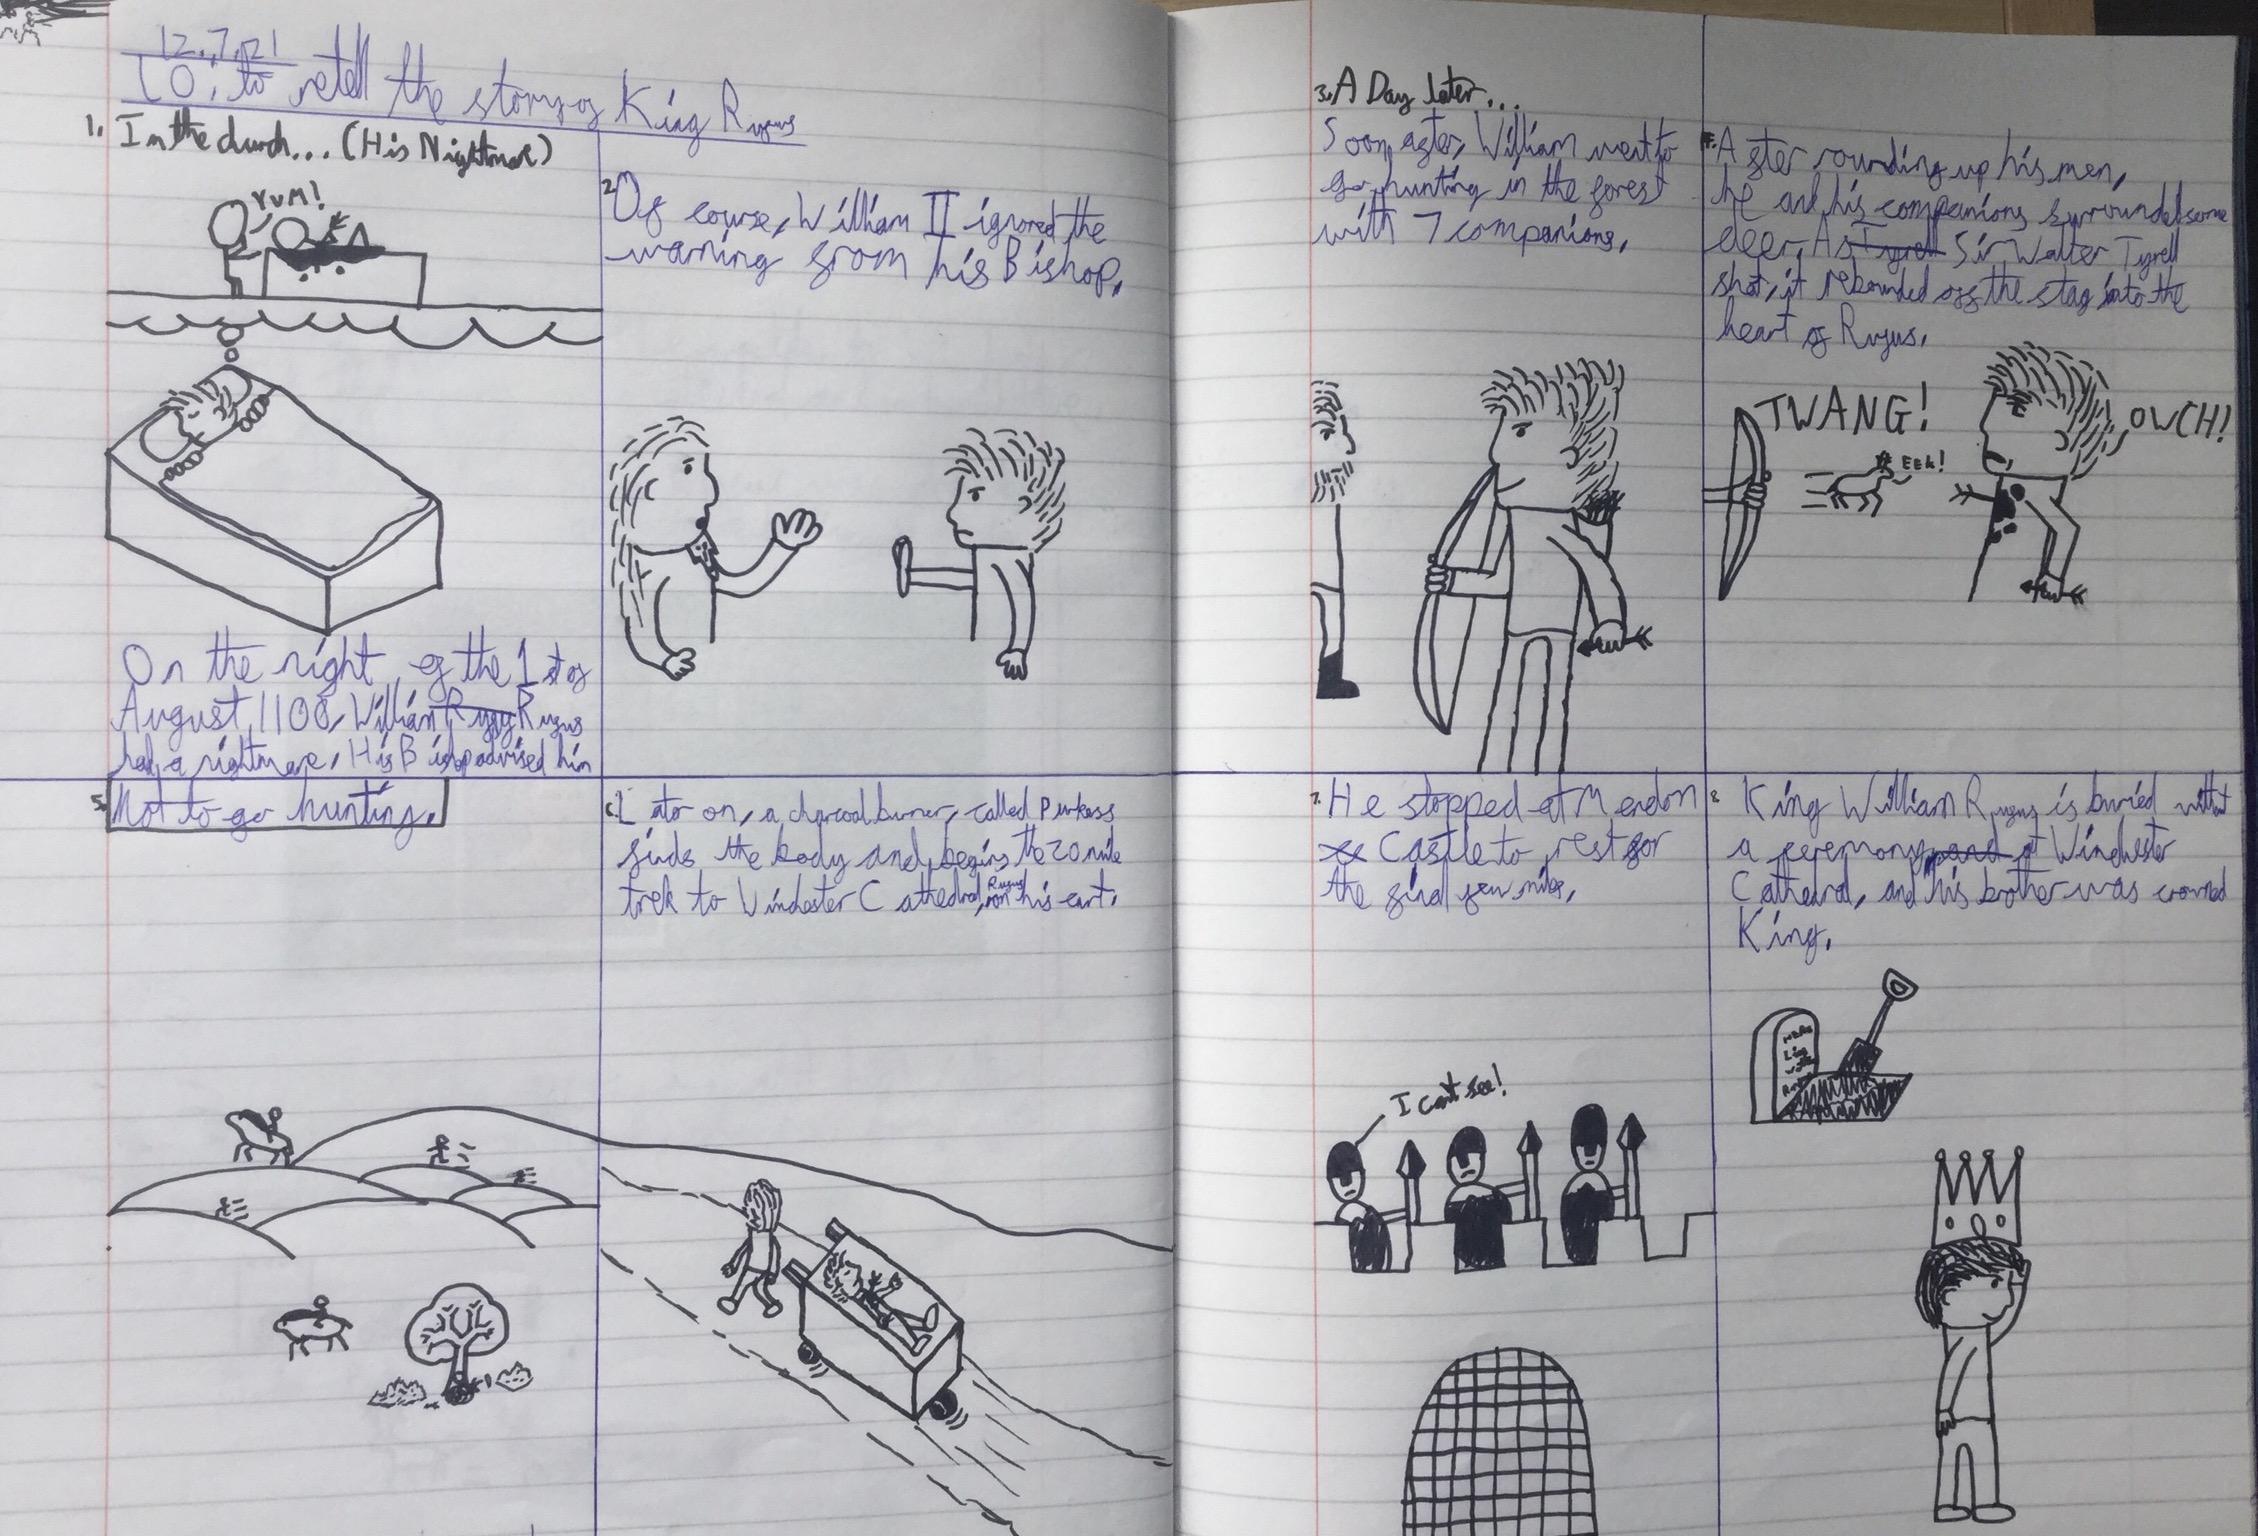 12.7.21
LO: to retell the story of King Rufus
1. In the church... (His Nightmare)
YUM!
On the night of the 1st of
August 1100, William Ruffy Rufus
had a nightmare. His Bishop advised him
Not to go hunting.
2. Of course, William II ignored the
warning from his Bishop.
3. A Day later...
Soon after, William went to
go hunting in the forest
with 7 companions.
4. After rounding up his men,
he and his companions surrounded some
deer. As Tyrell Sir Walter Tyrell
shot, it rebounded off the stag into the
heart of Rufus.
TWANG!
EEK!
OWCH!
5.
6. Later on, a charcoal burner, called Purkess
finds the body and begins the 20 mile
trek to Winchester Cathedral, Rufus on his cart.
7. He stopped at Merdon
Castle to rest for
the final few miles.
I can't see!
8. King William Rufus is buried without
a ceremony and at Winchester
Cathedral, and his brother was crowned
King.